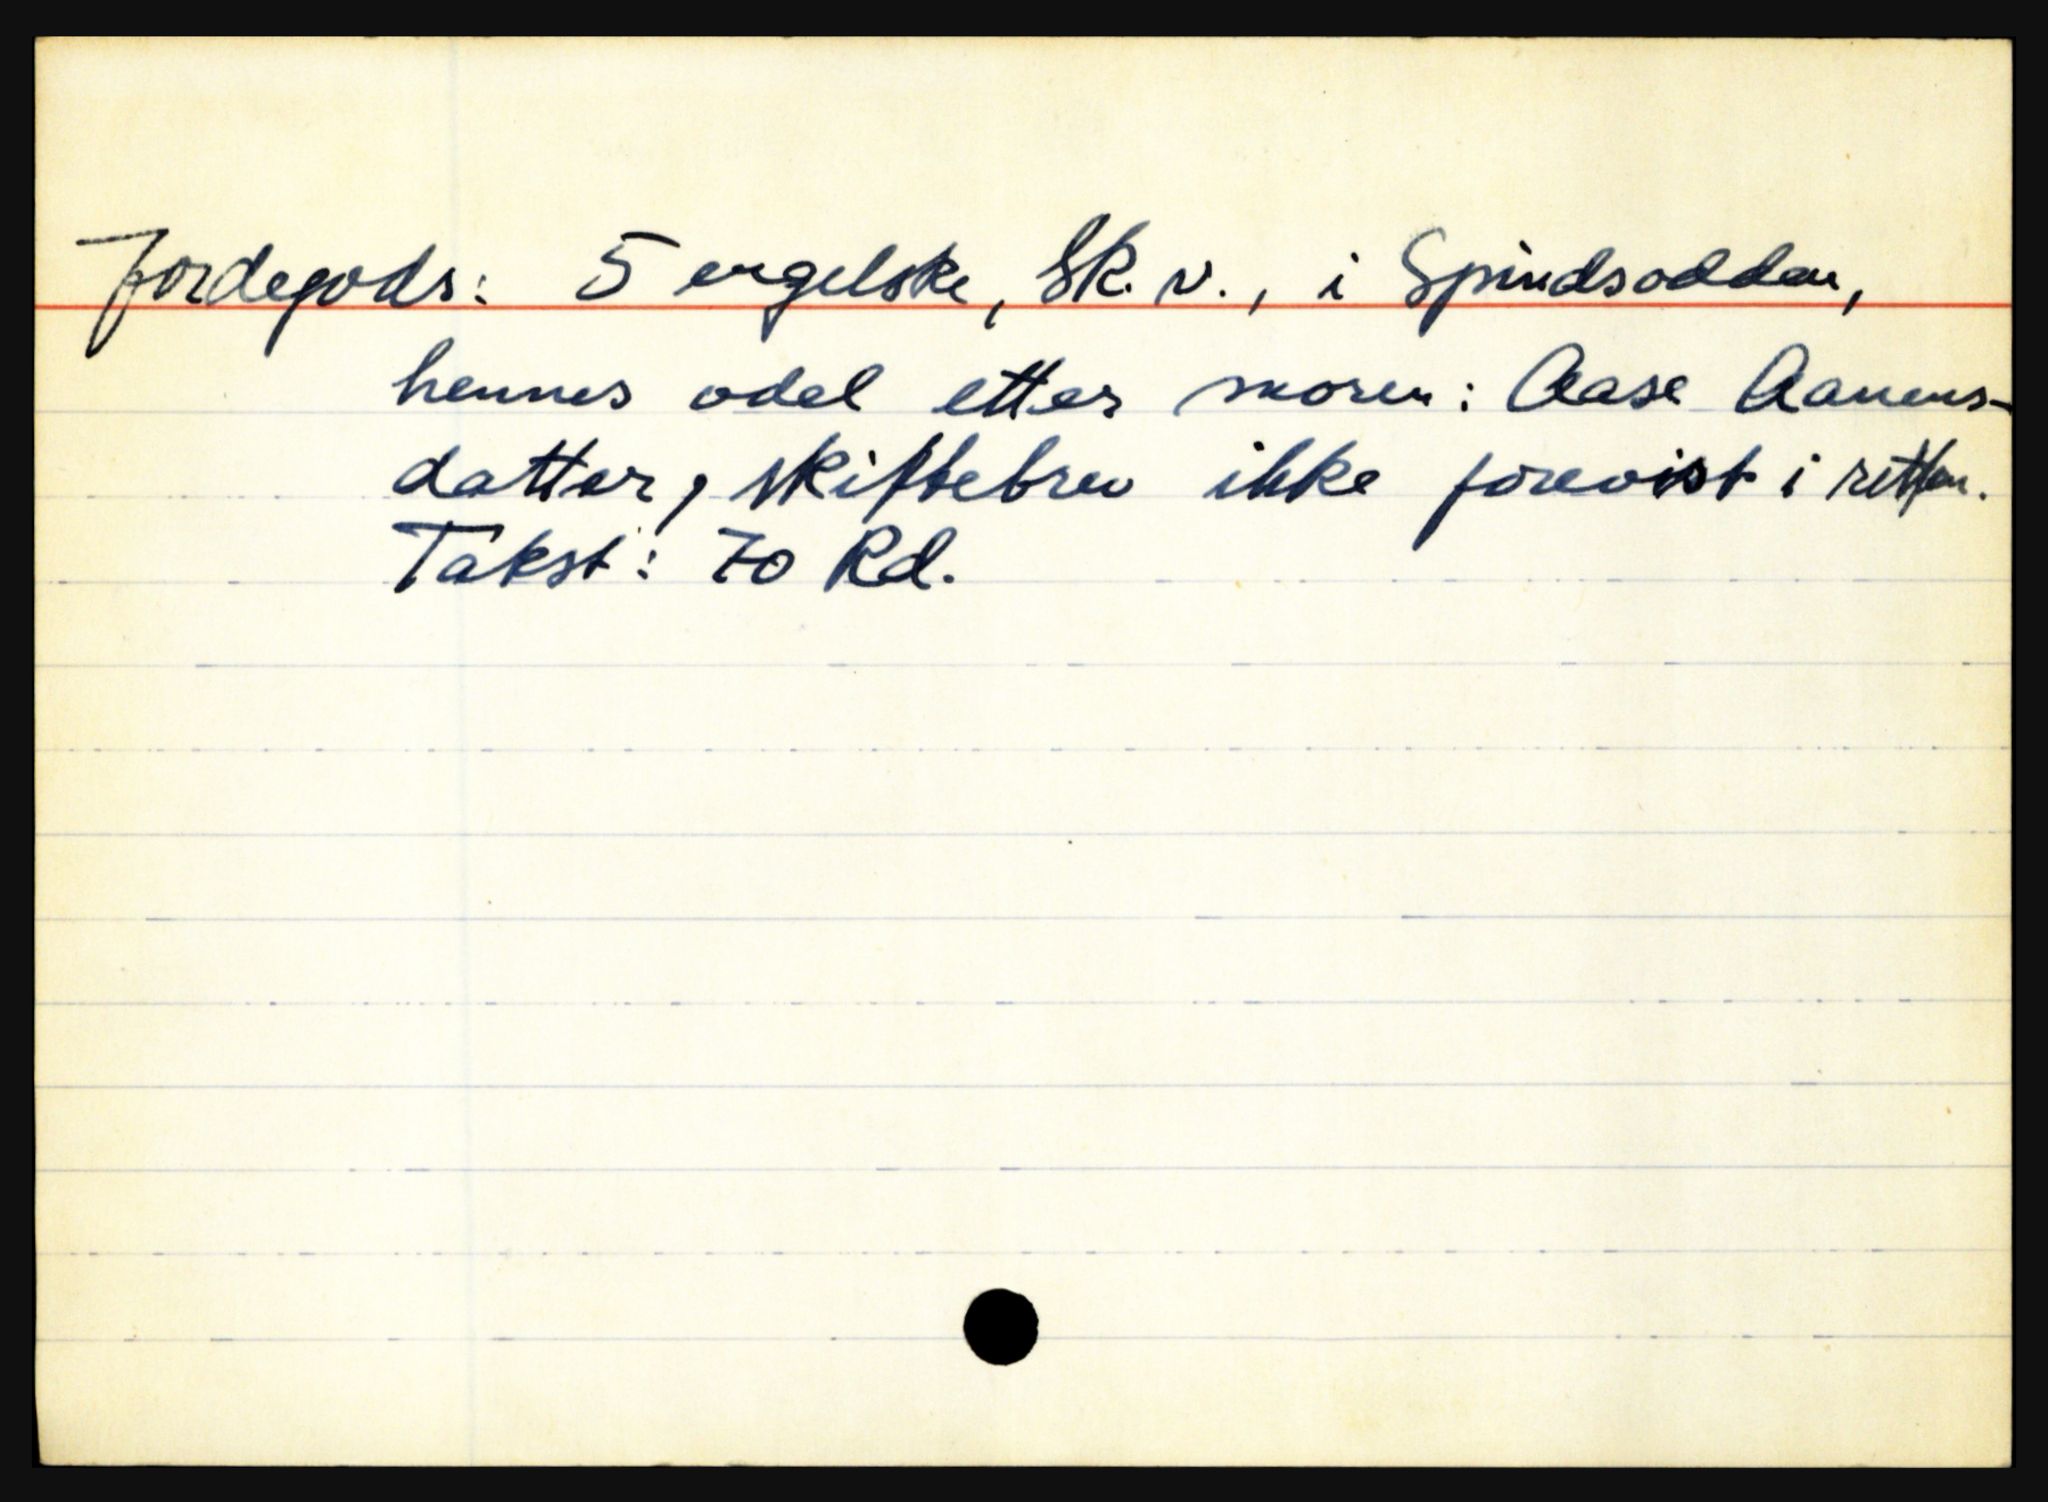 Jordegods: 5 engelske, Sk. v., i Spindsodden,
hennes odel etter moren: Aase Aanens-
datter, skiftebrev ikke forevist i retten.
Takst: 70 Rd.